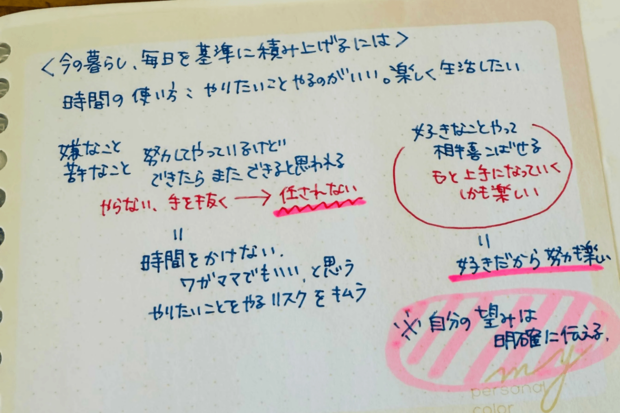 <今の暮らし、毎日を基準に積み上げるには>
時間の使い方: やりたいことやるのがいい。楽しく生活したい
嫌なこと
苦手なこと
努力してやっているけど
できたら またできると思われる
やらない、手を抜く → 任されない
=
時間をかけない、
ワガママでもいい、と思う
やりたいことをやるリスクをキムラ
好きなことやって
相手喜こばせる
もと上手になっていく
しかも楽しい
=
好きだから 努力も楽しい
※ 自分の望みは
明確に伝える。
my
personal
color